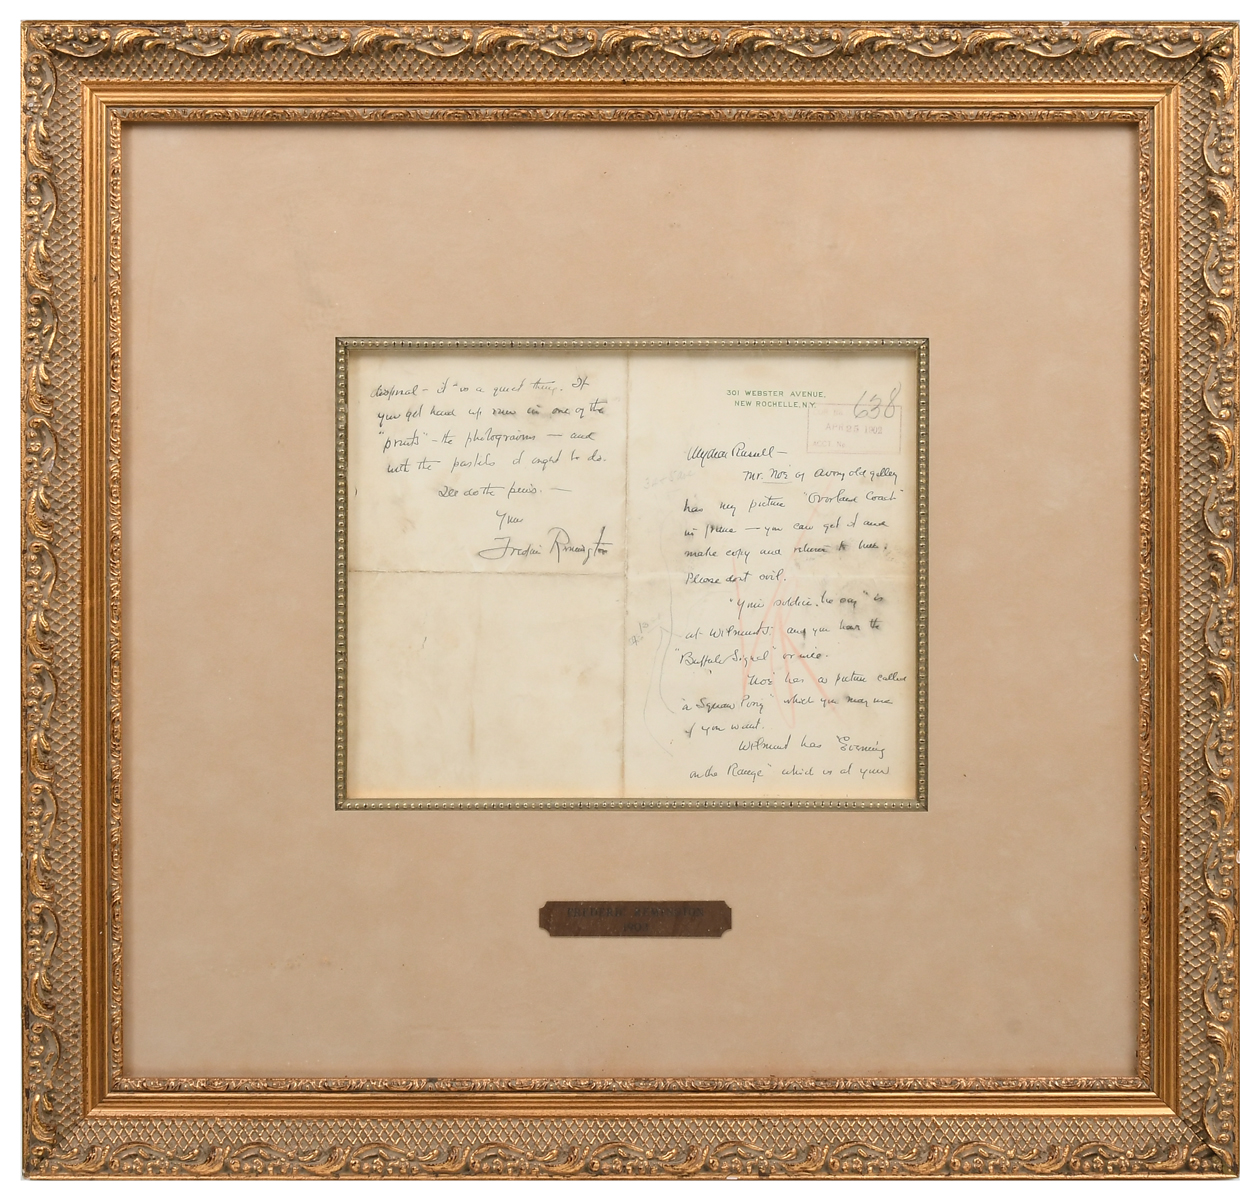 301 WEBSTER AVENUE,
NEW ROCHELLE, N.Y.
638
APR 25 1902
My dear Russell —
Mr. Noé of Avery old gallery
has my picture "Overland Coach"
in frame — you can get it and
make copy and return to him.
Please dont soil.
"Your soldier, he say" is
at Wilmurts and you have the
"Buffalo Signal" or nice.
Noé has a picture called
"a Squaw Pony" which you may use
if you want.
Wilmurt has "Evening
on the Range" which is at your
disposal — it is a quiet thing. If
you get hard up run in one of the
"prints" — the photogravures — and
with the pastels it ought to do.
All do the pens. —
Yours
Frederic Remington
FREDERIC REMINGTON